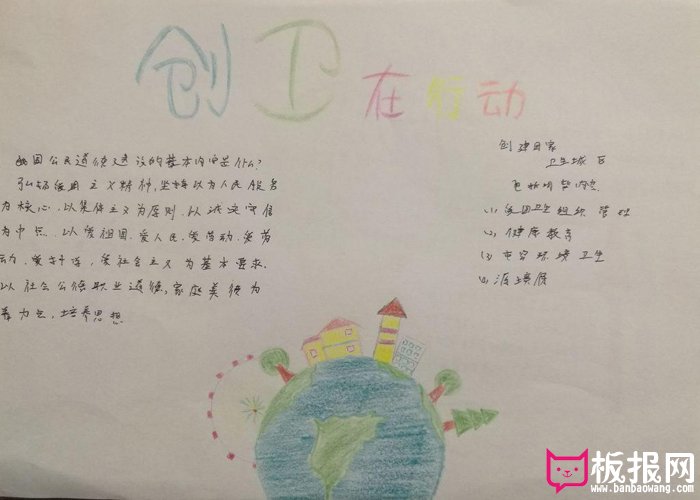 创卫在行动
我国公民道德建设的基本内容是什么?
弘扬爱国主义精神,坚持以为人民服务
为核心,以集体主义为原则,以诚实守信
为中点,以爱祖国、爱人民、爱劳动、爱劳
动、爱科学、爱社会主义为基本要求,
以社会公德职业道德,家庭美德为
着力点,培养思想
创建国家
卫生城
(1)爱国卫生组织管理
(2)健康教育
(3)市容环境卫生
(4)
板报网
www.banbaowang.com